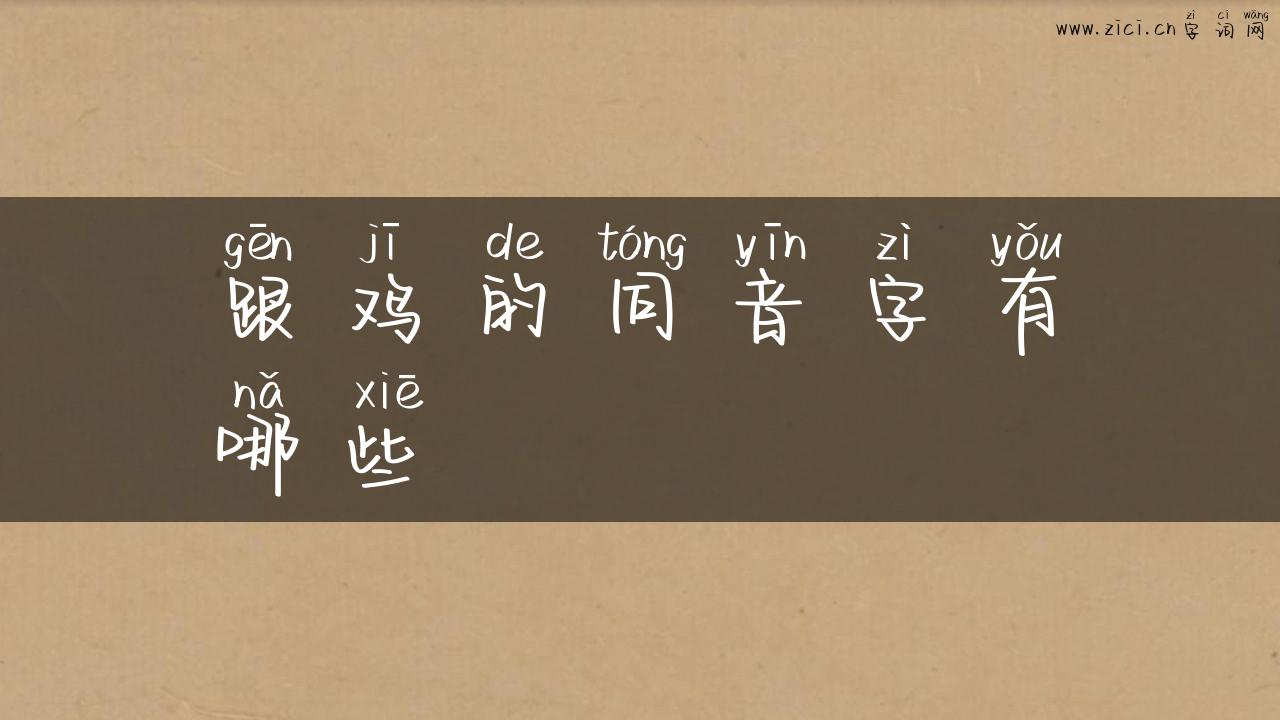 zì cí wǎng
www.zici.cn 字 词 网
gēn jī de tóng yīn zì yǒu
跟 鸡 的 同 音 字 有
nǎ xiē
哪 些